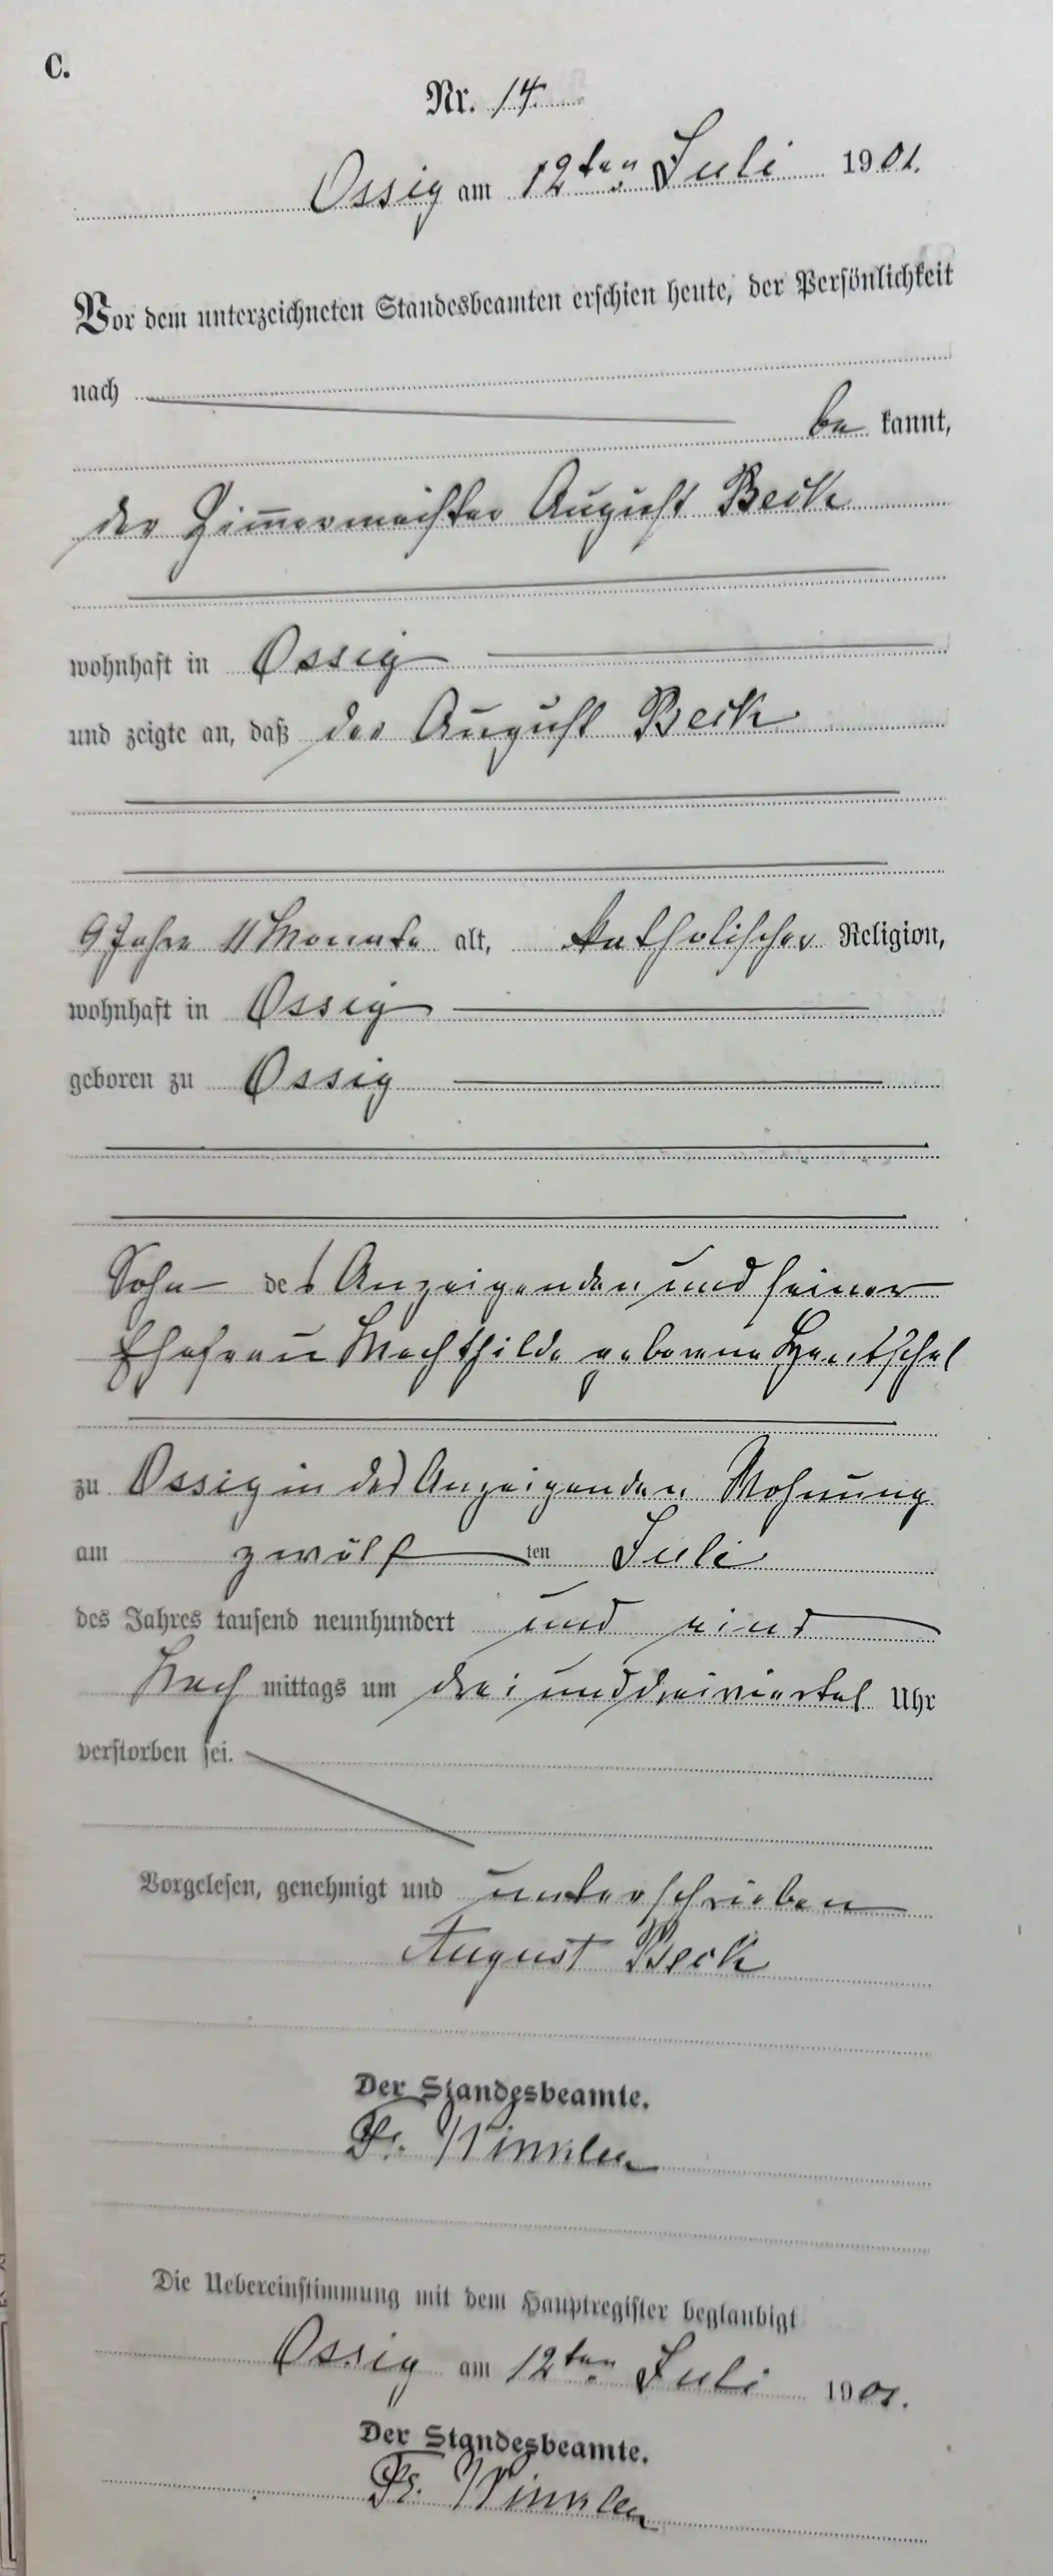 C.
Nr. 14
Ossig am 12ten Juli 1901.
Vor dem unterzeichneten Standesbeamten erschien heute, der Persönlichkeit
nach
be kannt,
der Zim̄ermeister August Beck
wohnhaft in Ossig
und zeigte an, daß der August Beck
9 Jahre 11 Monate alt, katholischer Religion,
wohnhaft in Ossig
geboren zu Ossig
Sohn des Anzeigenden und seiner
Ehefrau Mechthilde geborene Hentschel
zu Ossig in des Anzeigenden Wohnung
am zwölf ten Juli
des Jahres tausend neunhundert und eins
Nach mittags um drei und dreiviertel Uhr
verstorben sei.
Vorgelesen, genehmigt und unterschrieben
August Beck
Der Standesbeamte.
Die Uebereinstimmung mit dem Hauptregister beglaubigt
Ossig am 12ten Juli 1901.
Der Standesbeamte.